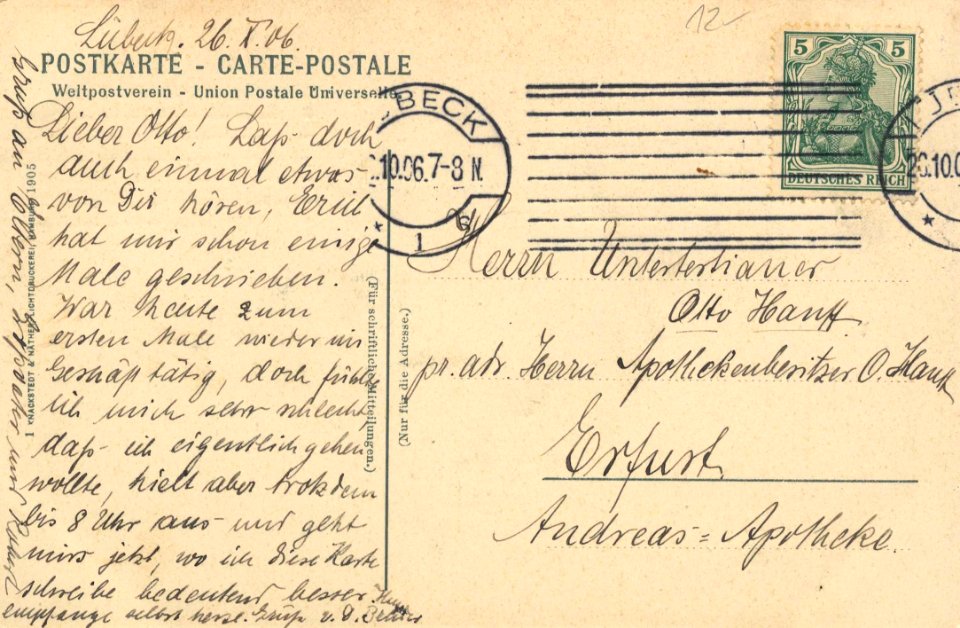 12-
Lübeck. 26. X. 06.
POSTKARTE - CARTE-POSTALE
Weltpostverein - Union Postale Universelle
Lieber Otto! Laß doch
auch einmal etwas
von Dir hören, Erul
hat mir schon einige
Male geschrieben.
War heute zum
ersten Male wieder im
Geschäft tätig, doch fühlte
ich mich sehr schlecht,
daß ich eigentlich gehen
wollte, hielt aber trotzdem
bis 8 Uhr aus und geht
mirs jetzt, wo ich diese Karte
schreibe bedeutend besser.
empfange selbst herzl. Gruß v. D. Bruder
Gruß an Eltern, und
KNACKSTEDT & NÄTHER, LICHTDRUCKEREI, HAMBURG 1905
(Für schriftliche Mitteilungen.)
(Nur für die Adresse.)
BECK
.10.06.7-8 N.
* 1 g
5 5
DEUTSCHES REICH
26.10.0
*
Herrn Untertertianer
Otto Hanff
pr. adr. Herrn Apothekenbesitzer O. Hanff
Erfurt
Andreas=Apotheke.